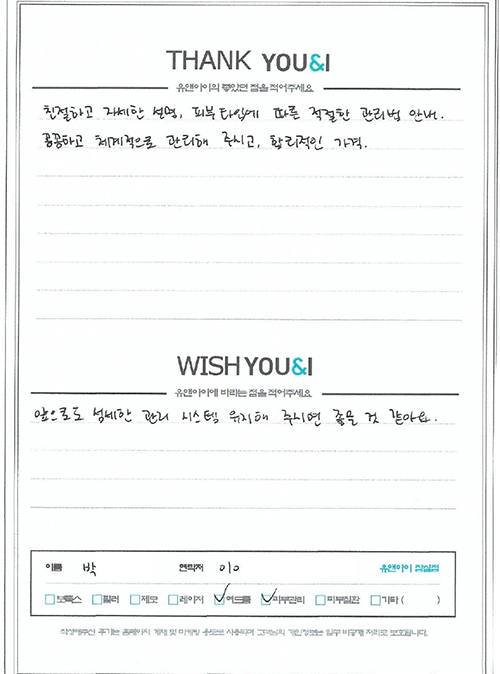 THANK YOU&I
유앤아이의 좋았던 점을 적어주세요
친절하고 자세한 설명, 피부타입에 따른 적절한 관리법 안내.
꼼꼼하고 체계적으로 관리해 주시고, 합리적인 가격.
WISH YOU&I
유앤아이에 바라는 점을 적어주세요
앞으로도 섬세한 관리 시스템 유지해 주시면 좋을 것 같아요.
이름 박 연락처 010 유앤아이 잠실점
보톡스 필러 제모 레이저 여드름 피부관리 피부질환 기타 ( )
작성해주신 후기는 홈페이지 게재 및 마케팅 용도로 사용되며 고객님의 개인정보는 일부 비공개 처리로 보호됩니다.